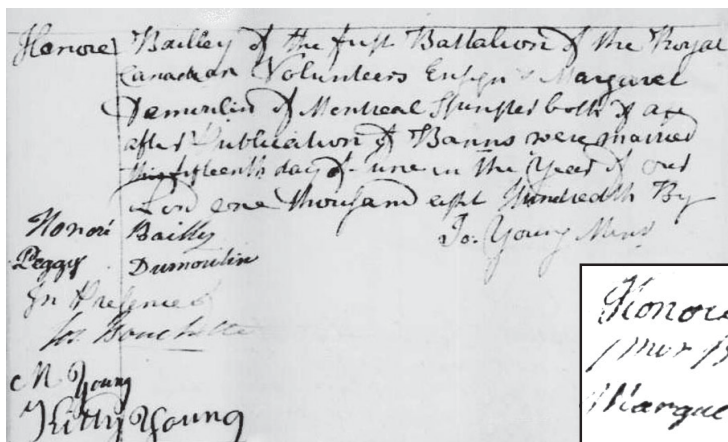 Honore Bailley of the first Battalion of the Royal
Canadian Volunteers Ensign & Margaret
Demoulin of Montreal Spinster both of age
after Publication of Banns were married
this fifteenth day of June in the Year of our
Lord one thousand eight Hundredth By
Jo: Young Minr
Honoré Bailly
Peggy Dumoulin
In Presence of
Jos. Bouchette
M Young
Kitty Young
Honore